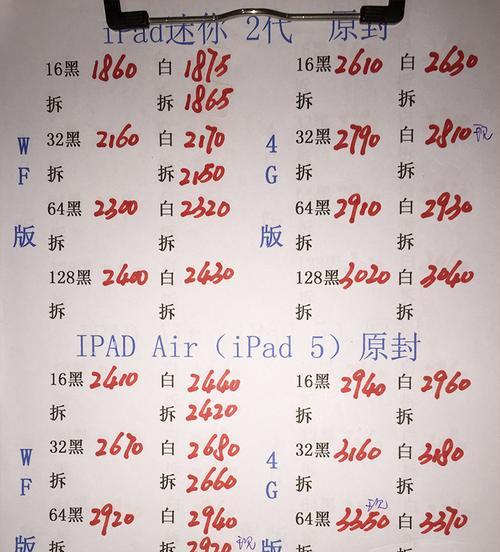 iPad迷你 2代 原封
16黑 1860 白 1875 16黑 2610 白 2630
拆 拆 1865 拆 拆
WF版 4G版
32黑 2160 白 2170 32黑 2790 白 2810 现
拆 拆 2150 拆 拆
64黑 2300 白 2320 64黑 2910 白 2930
拆 拆 拆 拆
128黑 2400 白 2430 128黑 3020 白 3040
拆 拆 拆 拆
IPAD Air（iPad 5）原封
16黑 2410 白 2440 16黑 2940 白 2960
拆 拆 2420 拆 拆
WF版 4G版
32黑 2670 白 2680 32黑 3160 白 3180
拆 拆 2660 拆 拆
64黑 2920 白 2940 64黑 3350 现 白 3370
拆 拆 2920 现 拆 拆